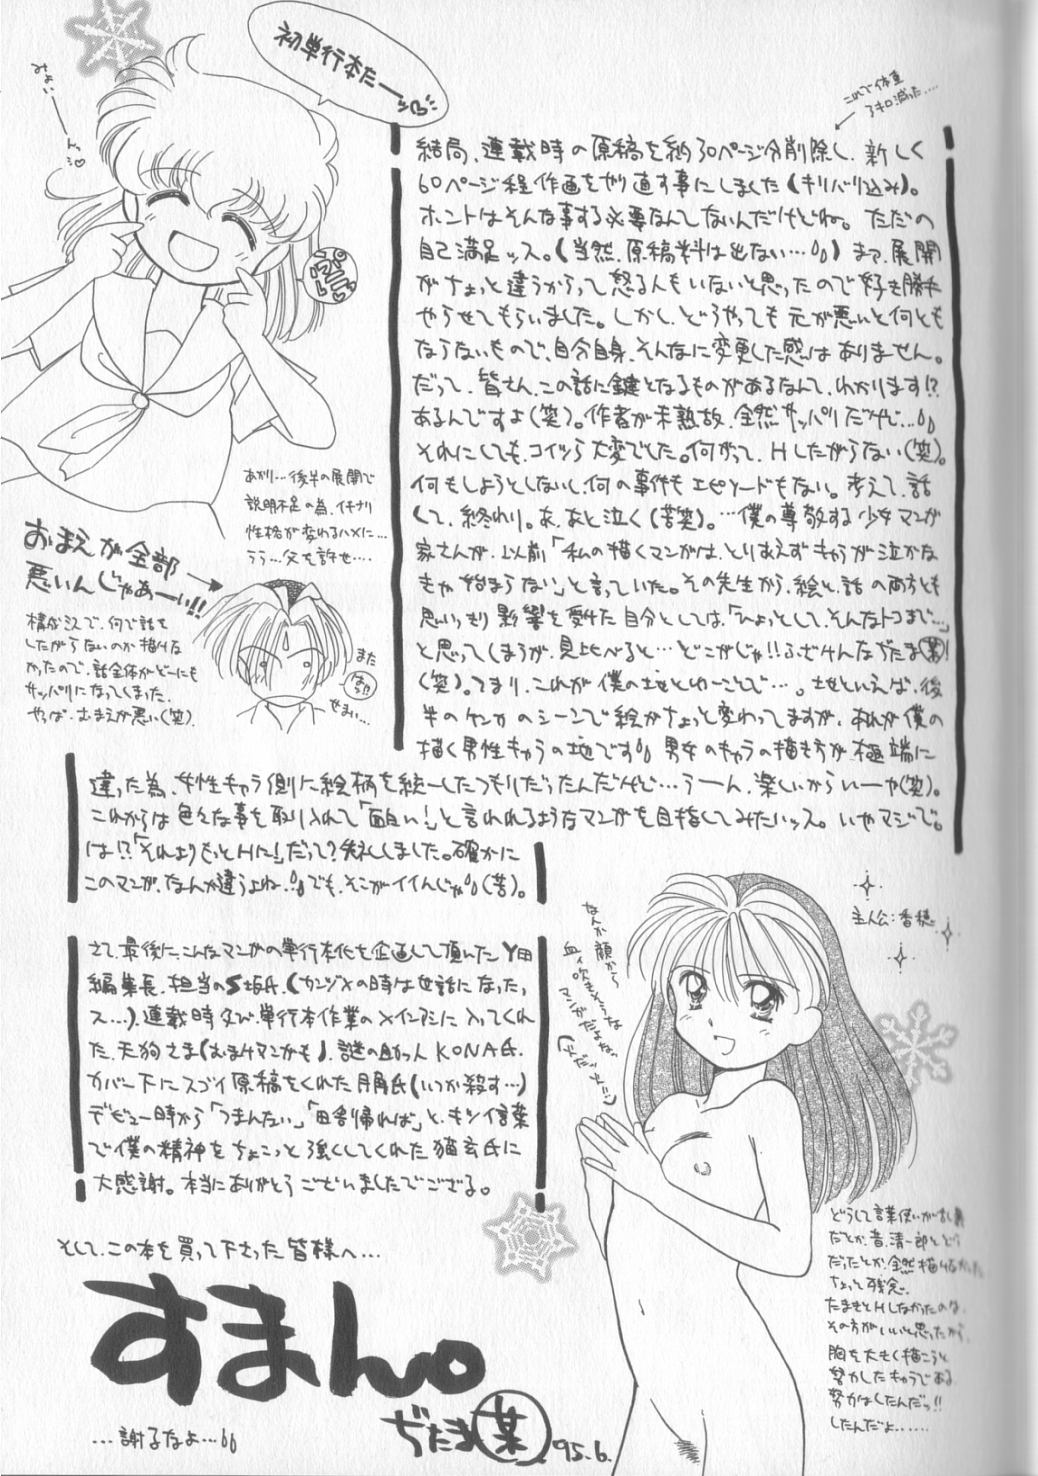 初単行本だー
みょいーーーんっ
これで体重
2キロ減った....
結局、連載時の原稿を約30ページ分削除し、新しく
60ページ程作画をやり直す事にしました(キリバリ込み)。
ホントはそんな事する必要なんてないんだけどね。ただの
自己満足ッス。(当然、原稿料は出ない…)まァ、展開
がちょっと違うからって怒る人もいないと思ったので好き勝手
やらせてもらいました。しかし、どうやっても元が悪いと何とも
ならないもので、自分自身、そんなに変更した感はありません。
だって、皆さん、この話に鍵となるものがあるなんて、わかります!?
あるんですよ(笑)。作者が未熟故、全然サッパリだけど…
それにしても、コイツら大変でした。何がって、Hしたがらない(笑)。
何もしようとしないし、何の事件もエピソードもない。考えて、話
して、終わり。あ、あと泣く(苦笑)。…僕の尊敬する少女マンガ
家さんが、以前「私の描くマンガは、とりあえずキャラが泣かな
きゃ始まらない」と言っていた。その先生から、絵と、話の両方とも
思いっきり影響を受けた自分としては、「ひょっとして、そんなトコまで…」
と思ってしまうが、見比べると…どこがじゃ!!ふざけんなぢたま㊅!
(笑)。つまり、これが僕の地とゆーことで…。地といえば、後
半のケンカのシーンで絵がちょっと変わってますが、あれが僕の
描く男性キャラの地です 男女のキャラの描き方が極端に
違った為、女性キャラ側に絵柄を統一したつもりだったんだけど…うーん、楽しいからいーや(笑)。
これからは色々な事を取り入れて「面白い!」と言われるようなマンガを目指してみたいッス。いやマジで。
は!?「それよりもっとHに!」だって?失礼しました。確かに
このマンガ、なんか違うよね。でも、そこがイイんじゃ(苦)。
あかり…後半の展開で
説明不足の為、イキナリ
性格が変わるハメに…
うう…父を許せ…
おまえが全部
悪いんじゃあーい!!
構成ミスで、何で話を
したがらないのか描けな
かったので、話全体がどーにも
サッパリになってしまった。
やっぱ、おまえが悪い(笑)。
また
はら!!
せまい…
さて、最後に、こんなマンガの単行本化を企画して頂いたY田
編集長、担当のS坂氏、(カンヅメの時は世話になったっ
ス…)、連載時及び、単行本作業のメインアシに入ってくれ
た、天狗さま(おまけマンガも)、謎の助っ人KONA氏、
カバー下にスゴイ原稿をくれた氏(いつか殺す…)
デビュー時から「うまんない」「田舎帰れば」と、キツイ言葉
で僕の精神をちょこっと強くしてくれた猫玄氏に
大感謝。本当にありがとうございましたでござる。
主人公:香穂
なんか顔から
血ィ吹きそうな
マンガだよねェ
どうして言葉使いが
だとか、昔、清一郎とどう
だったとか、全然描けなかった
ちょっと残念。
たまきとHしなかったのは、
その方がいいと思ったから。
胸を大きく描こうと
努力したキャラである
努力はしたんだっ!!
したんだよ……
そして、この本を買って下さった皆様へ…
すまん。
ぢたま
'95.6.
…謝るなよ…